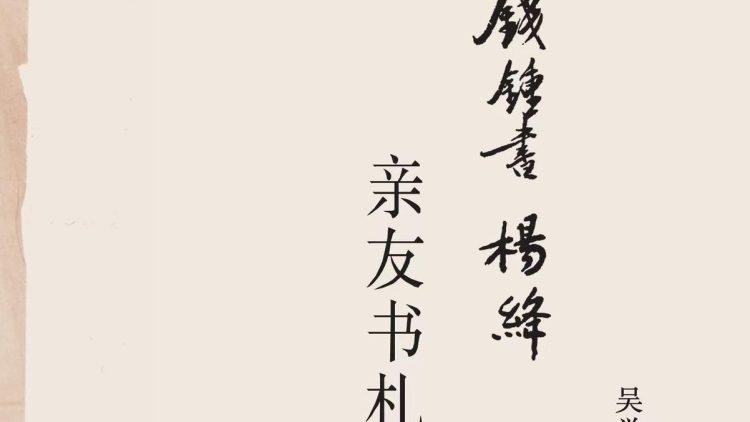 吴
錢鍾書 楊絳
亲友书札